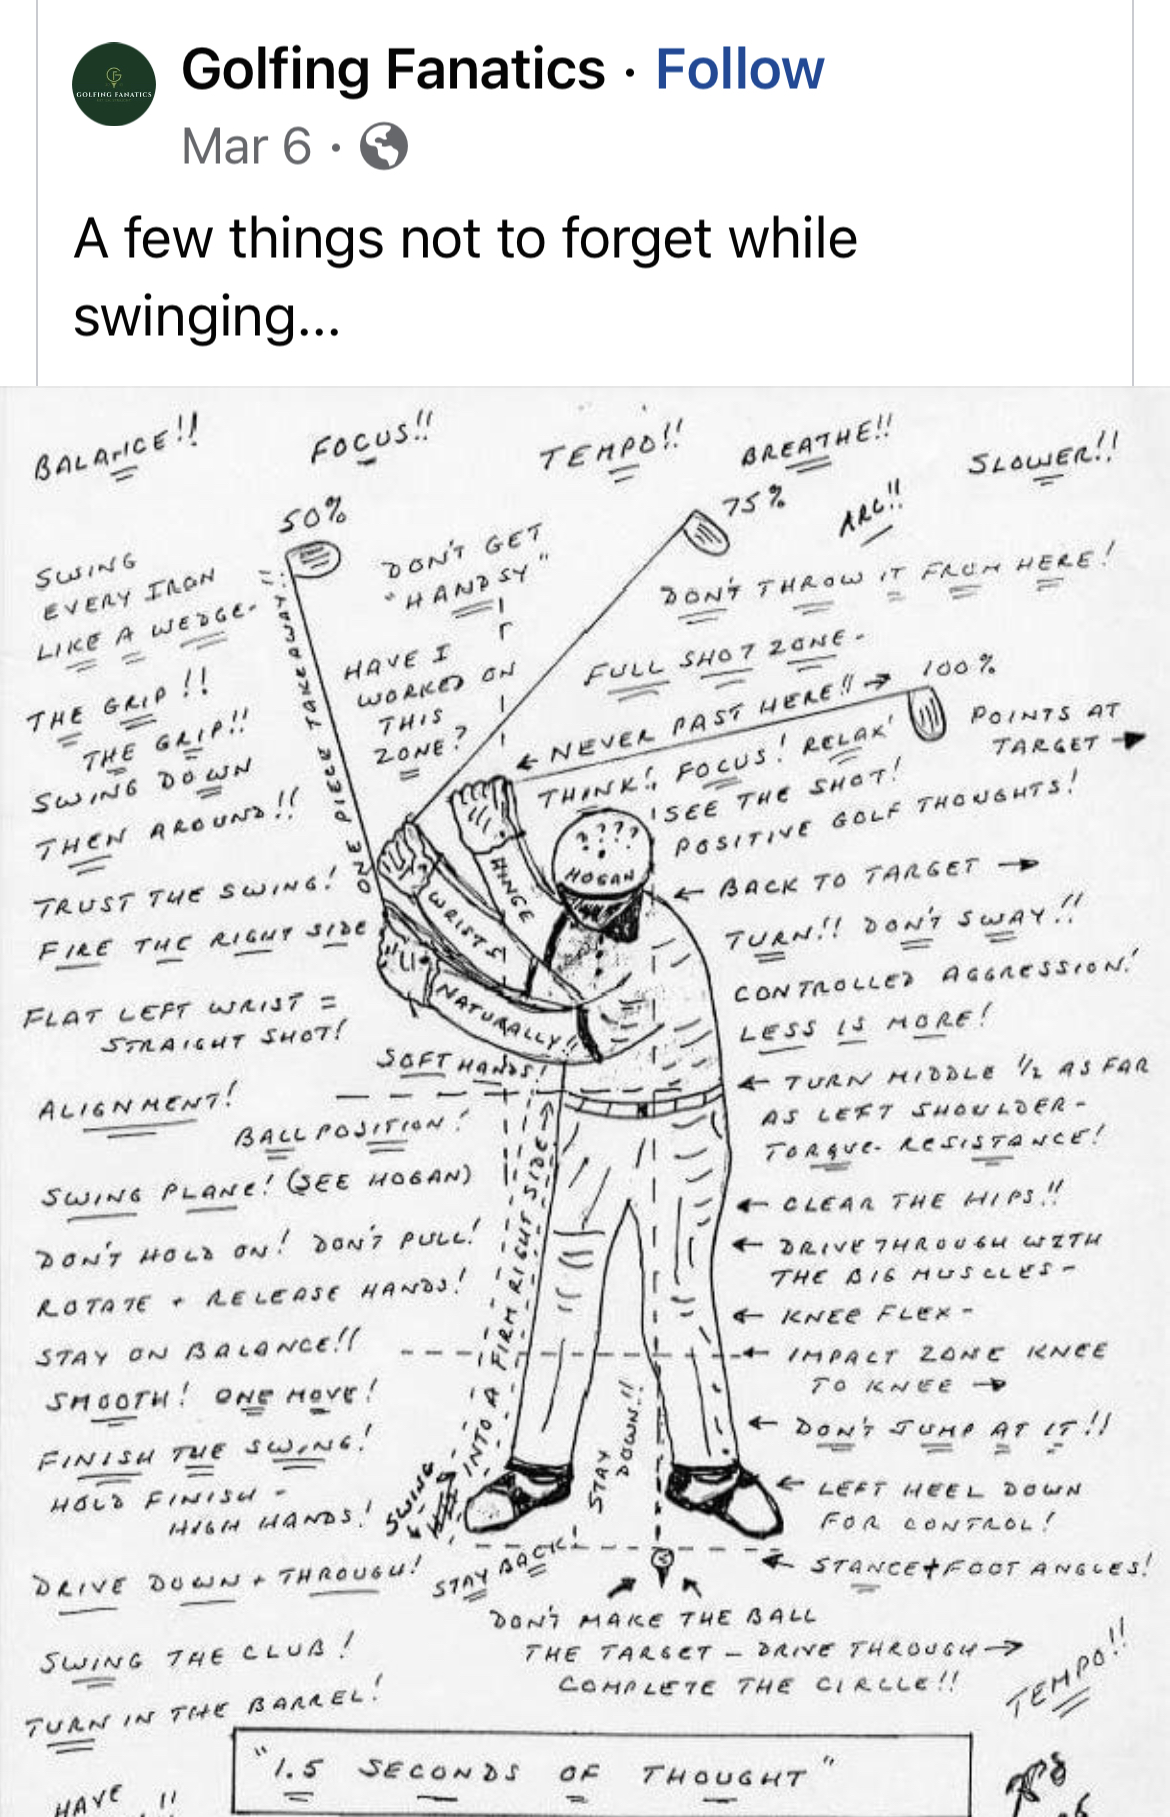 Golfing Fanatics · Follow
GOLFING FANATICS
Mar 6 ·
A few things not to forget while
swinging...
BALANCE!!
FOCUS!!
TEMPO!!
BREATHE!!
SLOWER!!
50%
75%
ARC!!
SWING
EVERY IRON
LIKE A WEDGE-
DON'T GET
"HANDSY"
DON'T THROW IT FROM HERE!
ONE PIECE TAKEAWAY!!
HAVE I
WORKED ON
THIS
ZONE?
FULL SHOT ZONE-
100%
THE GRIP!!
THE GRIP!!
← NEVER PAST HERE!! →
POINTS AT
TARGET →
SWING DOWN
THEN AROUND!!
THINK! FOCUS! RELAX!
SEE THE SHOT!
POSITIVE GOLF THOUGHTS!
????
HOGAN
HINGE
WRISTS
NATURALLY!!
TRUST THE SWING!
FIRE THE RIGHT SIDE
← BACK TO TARGET →
TURN!! DON'T SWAY!!
FLAT LEFT WRIST =
STRAIGHT SHOT!
CONTROLLED AGGRESSION!
LESS IS MORE!
SOFT HANDS!
← TURN MIDDLE 1/2 AS FAR
AS LEFT SHOULDER-
TORQUE- RESISTANCE!
ALIGNMENT!
BALL POSITION!
SWING PLANE! (SEE HOGAN)
← CLEAR THE HIPS!!
DON'T HOLD ON! DON'T PULL!
← DRIVE THROUGH WITH
THE BIG MUSCLES-
ROTATE + RELEASE HANDS!
← KNEE FLEX-
STAY ON BALANCE!!
← IMPACT ZONE KNEE
TO KNEE →
SMOOTH! ONE MOVE!
← DON'T JUMP AT IT!!
FINISH THE SWING!
HOLD FINISH -
HIGH HANDS!
SWING
INTO A FIRM RIGHT SIDE →
STAY
DOWN!!
← LEFT HEEL DOWN
FOR CONTROL!
DRIVE DOWN + THROUGH!
STAY BACK!
← STANCE + FOOT ANGLES!
DON'T MAKE THE BALL
THE TARGET - DRIVE THROUGH →
COMPLETE THE CIRCLE!!
SWING THE CLUB!
TURN IN THE BARREL!
TEMPO!!
"1.5 SECONDS OF THOUGHT"
HAVE